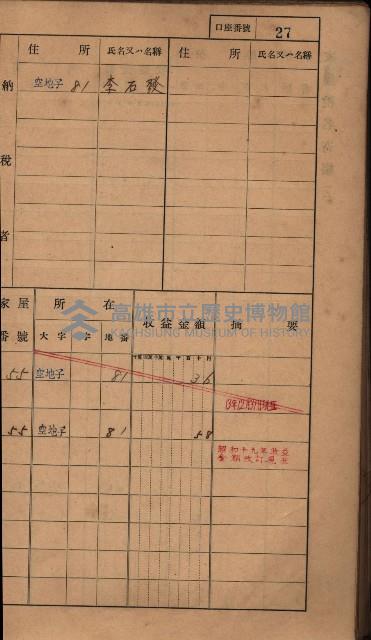 口座番號 27
住所 氏名又ハ名稱 住所 氏名又ハ名稱
納稅者
空地子 81 李石發
家屋番號 所在 收益金額 摘要
大字 字 地番
55 空地子 81 36
55 空地子 81 58
昭和十九年收益
金額改訂
高雄市立歷史博物館
KAOHSIUNG MUSEUM OF HISTORY